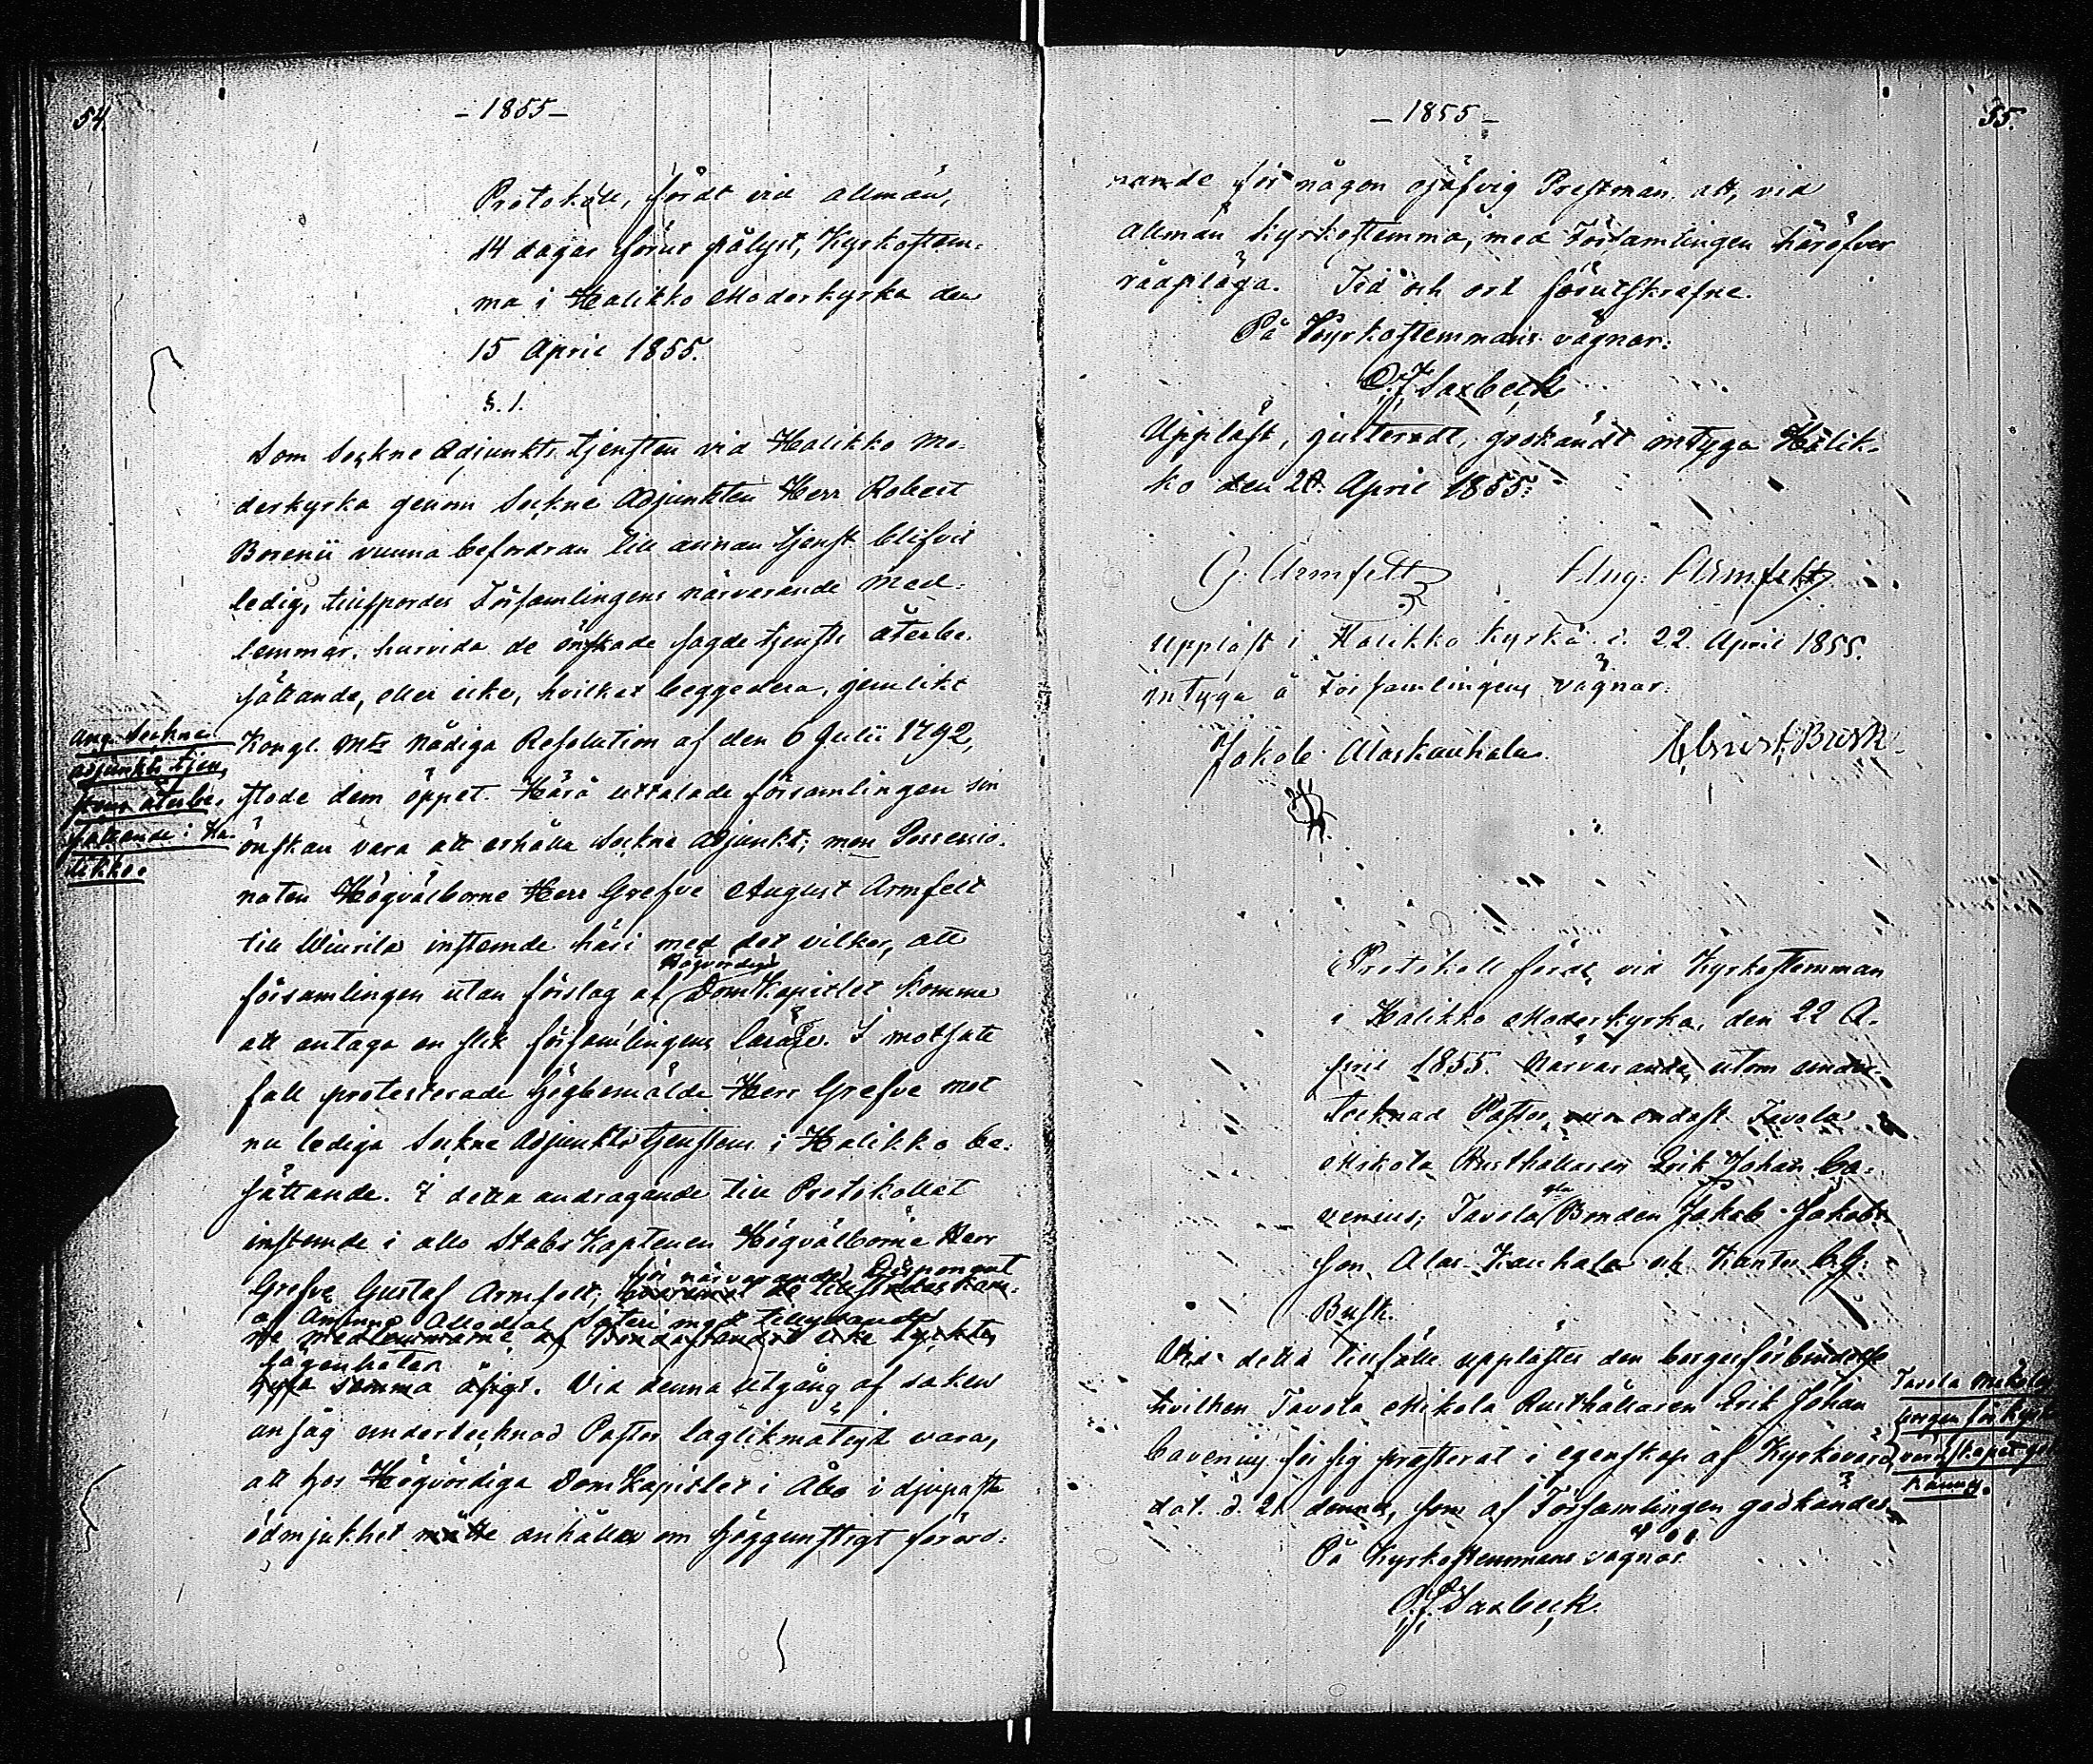 54.
- 1855 -
Protokoll, fördt vid allmän,
14 dagar förut pålyst, Kyrkostäm-
ma i Halikko Moderkyrka den
15 April 1855.
§. 1.
Som Sockne Adjunkts tjensten vid Halikko Mo-
derkyrka genom Sockne Adjunkten Herr Robert
Borenii vunna befordran till annan tjenst blifvit
ledig, tillspordes Församlingens närvarande Med-
lemmar, huruvida de önskade sagde tjensts återbe-
sättande, eller icke, hvilket beggedera, jemlikt
Kongl. Mts Nådiga Resolution af den 6 Julii 1792,
stode dem öppet. Härå uttalade församlingen sin
önskan vara att erhålla Sockne Adjunkt; men Possessio-
naten Högvälborne Herr Grefve August Armfelt
till Wiurila instemde häri med det vilkor, att
Högvördiga
församlingen utan förslag af DomKapitlet komme
att antaga en slik församlingens lärare. I motsatt
fall protesterade högbemälde Herr Grefve mot
nu lediga Sockne Adjunkts tjenstens i Halikko be-
sättande. I detta andragande till Protokollet
instemde i allo Stabs Kaptenen Högvälborne Herr
för närvarande Disponent
Grefve Gustaf Armfelt,
af Åminne Allodial Säteri med tillydande
lägenheter
hysa samma åsigt. Vid denna utgång af saken
ansåg undertecknad Pastor laglikmätigt vara,
att hos Högvördiga DomKapitlet i Åbo i djupaste
ödmjukhet anhålla om höggunstigt förord-
Ang. Sockne
adjunkts tjen-
stens återbe-
sättande i Ha-
likko.
55.
- 1855 -
nande för någon ojäfvig Prestman att, vid
allmän Kyrkostemma, med Församlingen häröfver
rådplöga. Tid och ort förutskrefne.
På Kyrkostemmans vägnar:
O. J. Saxbeck
Uppläst, justeradt, godkändt intyga Halik-
ko den 20. April 1855.
G. Armfelt Aug. Armfelt
Uppläst i Halikko Kyrka d. 22. April 1855.
intyga å Församlingens vägnar:
Jakob Alaskauhala Busk
Protokoll fördt vid Kyrkostemman
i Halikko Moderkyrka den 22 A-
pril 1855. Närvarande, utom under-
tecknad Pastor, endast Tavola
Mikola Rusthållaren Erik Johan Ca-
venius, Tavola Bonden Jakob Jakobs-
son Alas-Kauhala och Kantor
Busk.
Vid detta tillfälle upplästes den borgesförbindelse
hvilken Tavola Mikola Rusthållaren Erik Johan
Cavenius för sig presterat i egenskap af Kyrkovärd
dat. d. 21 dennes, som af Församlingen godkändes.
På Kyrkostemmans vägnar
O. J. Saxbeck.
Tavola Mikola
borgen för Kyrko-
värdskapet god-
kännes.